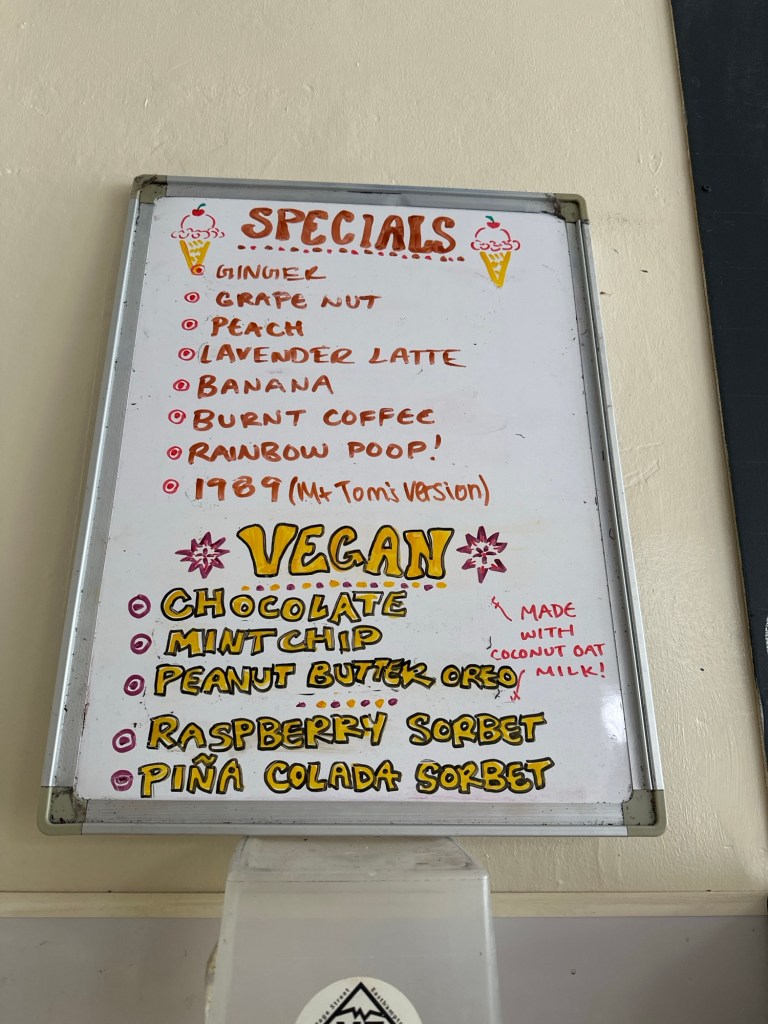 SPECIALS
GINGER
GRAPE NUT
PEACH
LAVENDER LATTE
BANANA
BURNT COFFEE
RAINBOW POOP!
1989 (Mt Tom's Version)
VEGAN
CHOCOLATE
MINT CHIP
PEANUT BUTTER OREO
MADE
WITH
COCONUT OAT
MILK!
RASPBERRY SORBET
PIÑA COLADA SORBET
Street